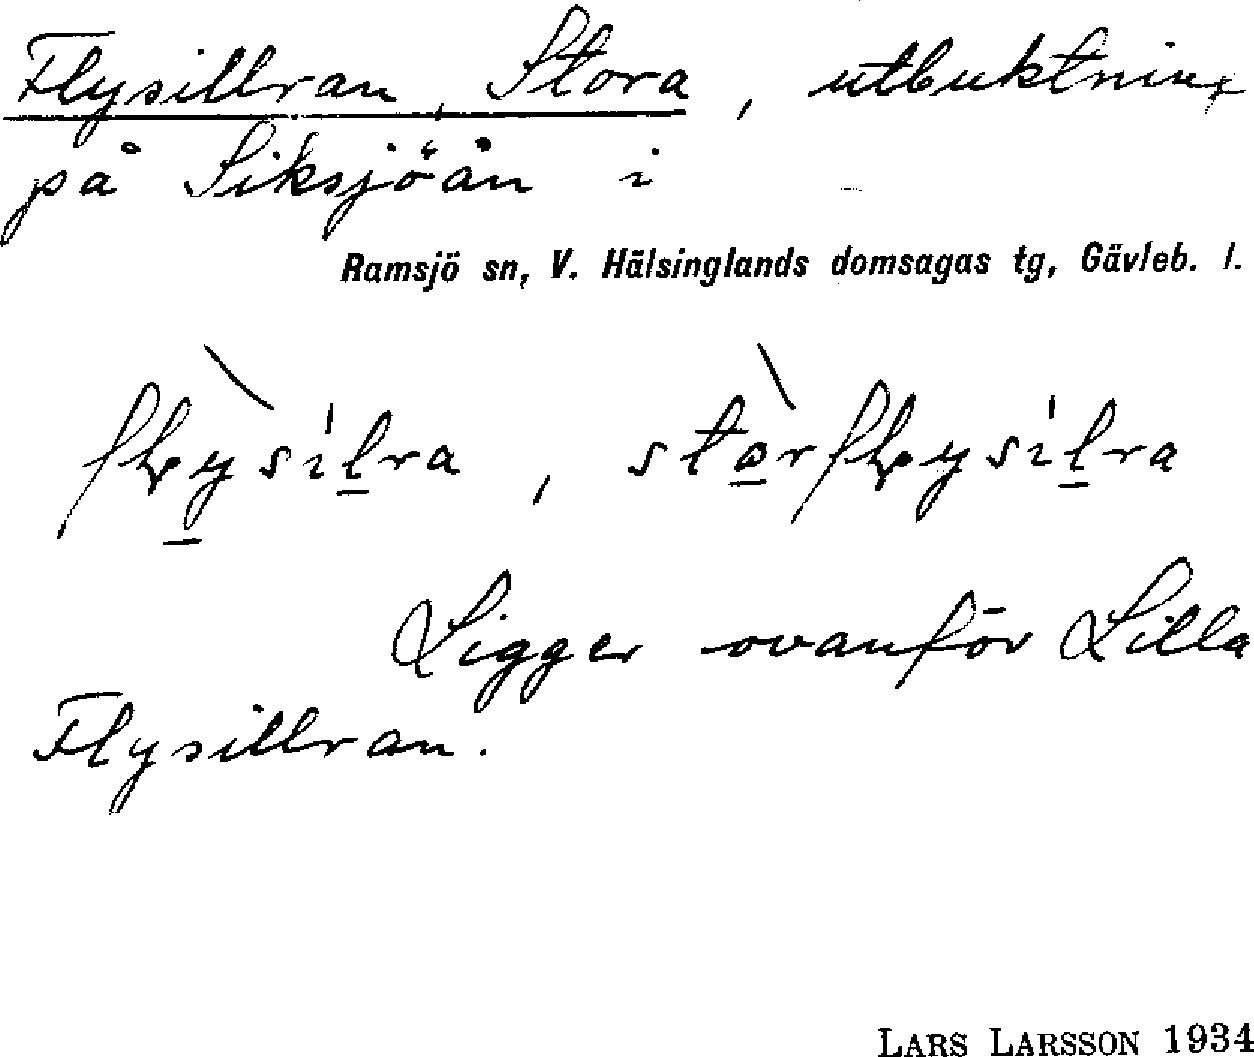 Flysillran, Stora, utbuktning
på Siksjöån i
Ramsjö sn, V. Hälsinglands domsagas tg, Gävleb. l.
Ligger ovanför Lilla
Flysillran.
LARS LARSSON 1934